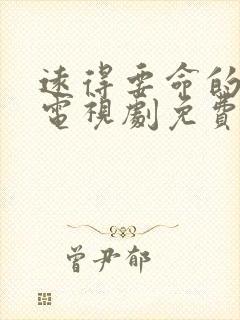 遠得要命的
電視劇免費
曾尹郁